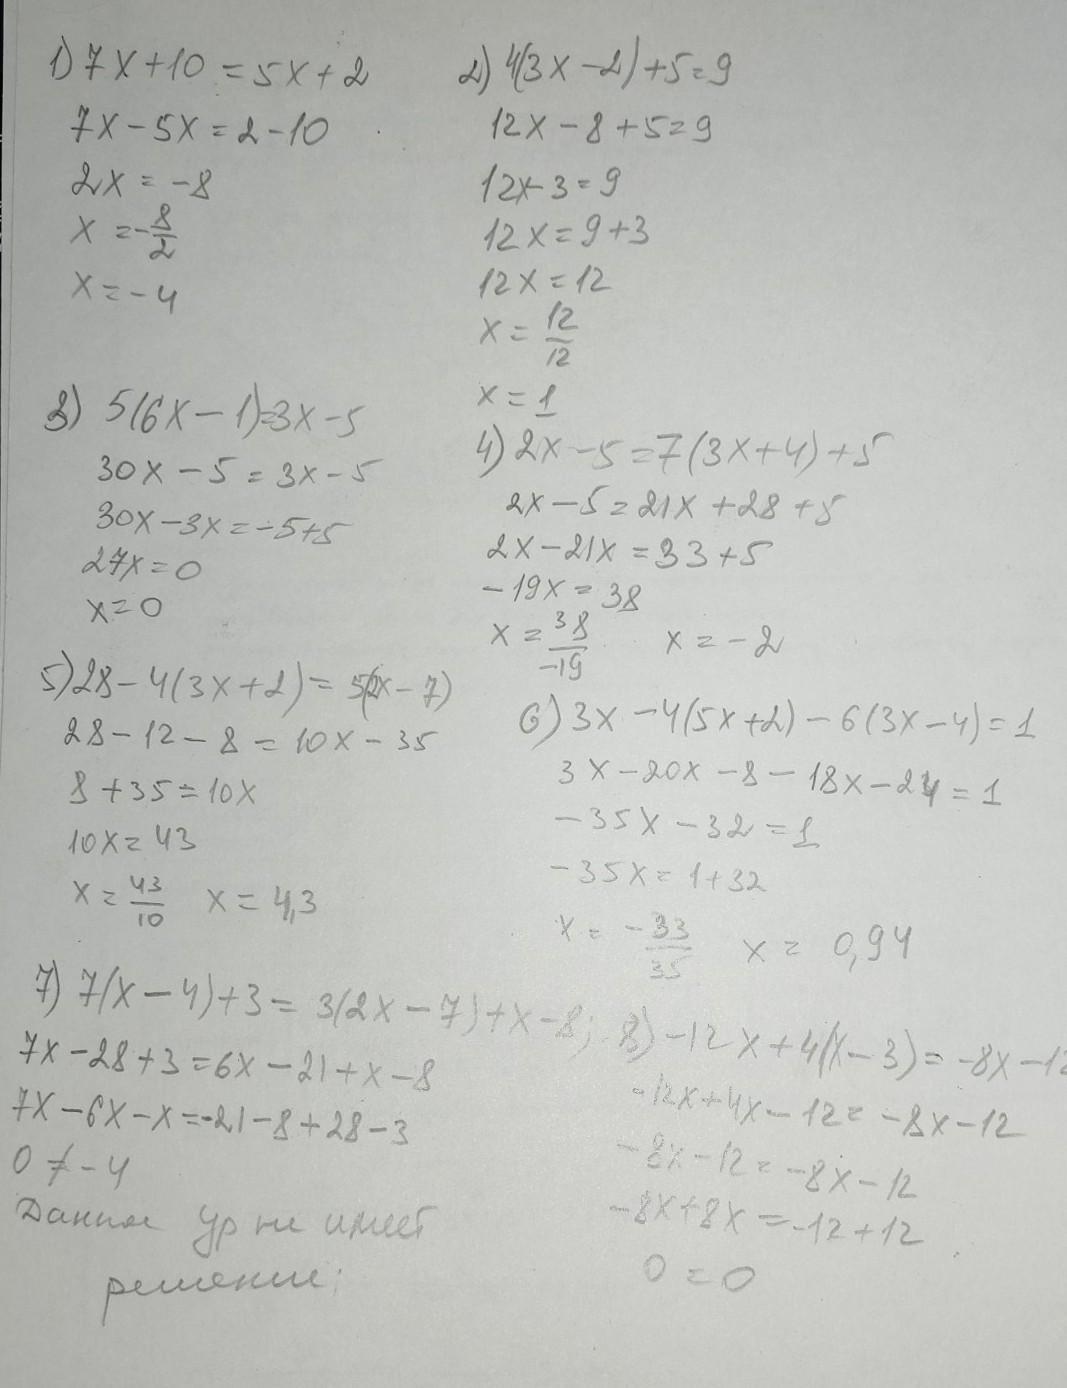 1) 7x+10=5x+2
7x-5x=2-10
2x=-8
x=-8/2
x=-4
2) 4(3x-2)+5=9
12x-8+5=9
12x-3=9
12x=9+3
12x=12
x=12/12
x=1
3) 5(6x-1)=3x-5
30x-5=3x-5
30x-3x=-5+5
27x=0
x=0
4) 2x-5=7(3x+4)+5
2x-5=21x+28+5
2x-21x=33+5
-19x=38
x=38/-19 x=-2
5) 28-4(3x+2)=5(2x-7)
28-12-8=10x-35
8+35=10x
10x=43
x=43/10 x=4,3
6) 3x-4(5x+2)-6(3x-4)=1
3x-20x-8-18x-24=1
-35x-32=1
-35x=1+32
x=-33/35 x=0,94
7) 7(x-4)+3=3(2x-7)+x-8;
7x-28+3=6x-21+x-8
7x-6x-x=-21-8+28-3
0≠-4
Данное ур не имеет
решение;
8) -12x+4(x-3)=-8x-12
-12x+4x-12=-8x-12
-8x-12=-8x-12
-8x+8x=-12+12
0=0